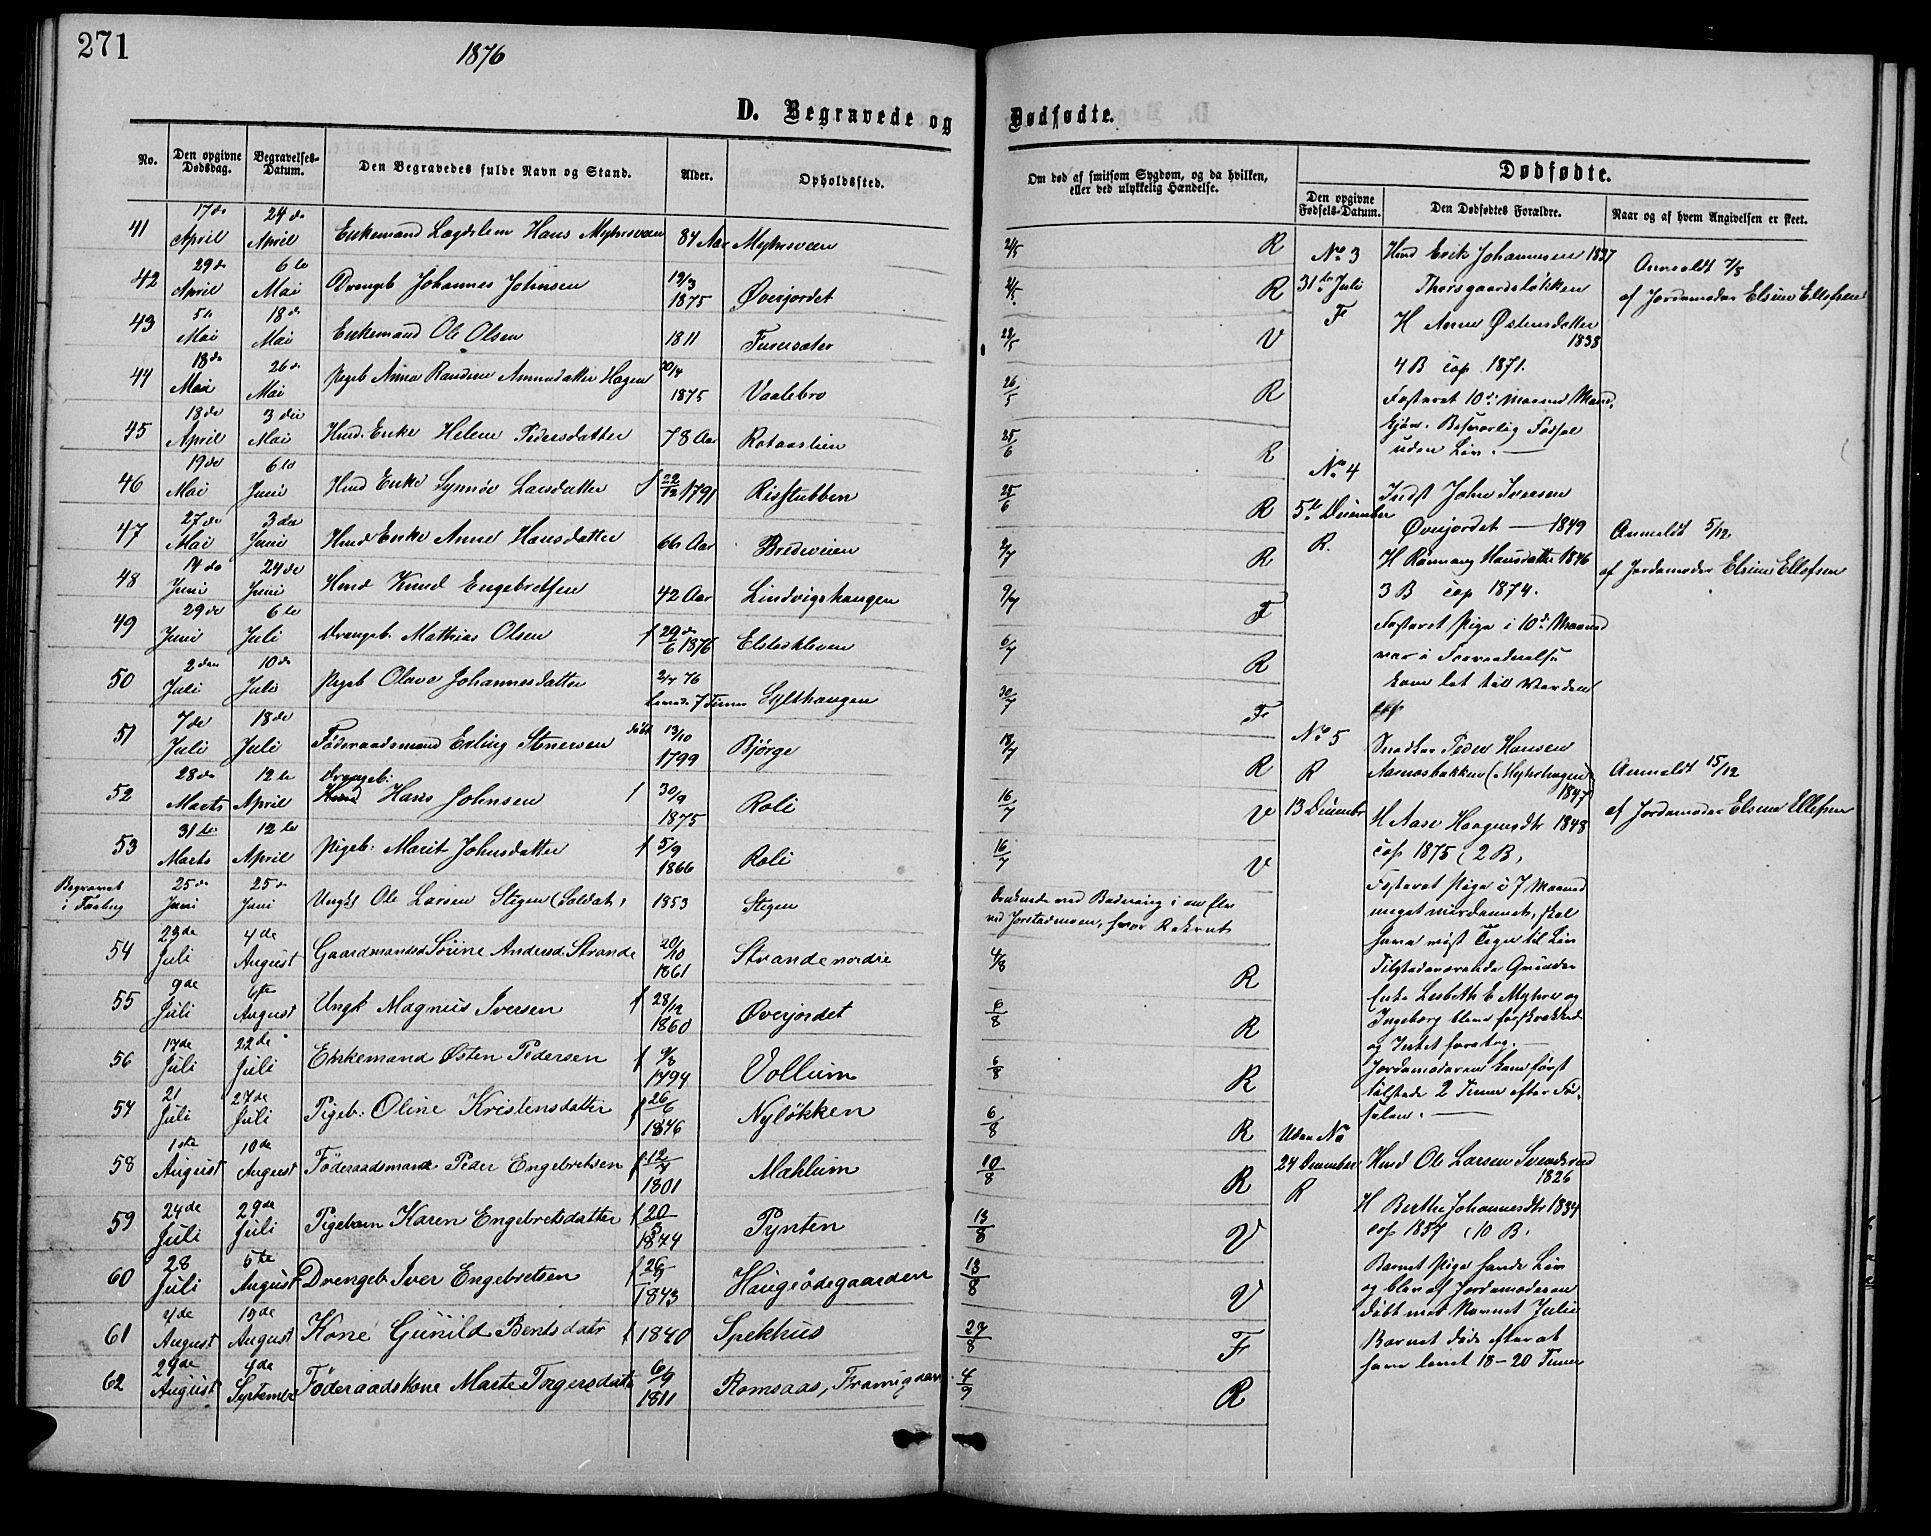 271
1876
D. Begravede og Dødfødte.
No. Den opgivne Dødsdag. Begravelses-Datum. Den Begravedes fulde Navn og Stand. Alder. Opholdssted.
41 17de April 24de April Enkemand Hans Myhrsveen 84 Aar Myhrsveen
42 29de April 6te Mai Drengeb Johannes Johnsen 19/3 1875 Øverjordet
43 5te Mai 18de Mai Enkemand Ole Olsen 1811 Furusæter
44 18de Mai 26de Mai Pigeb Anna Hagen 20/4 1875 Vaalebro
45 18de April 3die Mai Hmd. Enke Helene Pedersdatter 78 Aar Rotaaslien
46 19de Mai 6te Juni Hmd Enke Synnöv Larsdatter f 22/12 1791 Risstubben
47 27de Mai 3die Juni Hmd Enke Anne Hansdatter 66 Aar Bredeveien
48 14de Juni 24de Juni Hmd Knud Engebretsen 42 Aar Lindvigshaugen
49 29de Juni 6te Juli Drengeb. Mathias Olsen f 29de/6 1876 Elstadkleven
50 2den Juli 10de Juli Pigeb Olava Johannesdatter 2/7 76 levede 7 Timer Sylthaugen
51 7de Juli 18de Juli Föderaadsmand Erling Stenersen døbt 13/10 1799 Bjørge
52 28de Marts 12te April Drengeb: Hmd Hans Johnsen f 30/9 1875 Roli
53 31te Marts 12te April Pigeb: Marit Johnsdatter f 5/9 1866 Roli
Begravet i Faaberg 25de Juni 25de Juni Ungk Ole Larsen Stegen (Soldat) 1853 Stegen
54 23de Juli 4de August Gaardmandsd Sörine Andersd. Strande 20/10 1861 Strande nordre
55 9de Juli 6te August Ungk Magnus Iversen f 28/12 1860 Øverjordet
56 17de Juli 22de Juli Enkemand Østen Pedersen f 9/3 1794 Vollum
57 21 Juli 27de Juli Pigeb: Oline Kristensdatter f 26/6 1876 Nyløkken
58 1ste August 10de August Föderaadsmand Peder Engebretsen f 12/7 1801 Mæhlum
59 24de Juli 29de Juli Pigebarn Karen Engebretsdatter f 20/5 1874 Pynten
60 28 Juli 5te August Drengeb Iver Engebretsen f 26/9 1873 Haugsödegaarden
61 4de August 13de August Kone Gunild Bentsdatr f 1840 Spekhus
62 29de August 4de September Föderaadskone Marte Torgersdatt 6/9 1811 Romsaas, Framigaar
Om død af smitsom Sygdom, og da hvilken, eller ved ulykkelig Hændelse.
24/5 R
2/5 R
23/5 V
26/5 R
25/6 R
25/6 R
2/7 R
9/7 F
6/7 R
30/7 F
18/7 R
16/7 V
16/7 V
druknede ved Badning i en Elv
ved Jørstadmoen, hvor Rekrut
4/8 R
6/8 R
6/8 R
6/8 R
10/8 R
13/8 V
13/8 V
27/8 F
4/9 R
Dødfødte.
Den opgivne Fødsels-Datum. Den Dødfødtes Forældre. Naar og af hvem Angivelsen er skeet.
No 3 Hmd Erik Johannesen 1837 Anmeldt 7/8
31te Juli Thorsgaardsløkken af Jordemoder Elsine Ellefsen
F H Anne Østensdatter
1838
4 B cop 1871.
Fosteret 10de Maaned
Besværlig Fødsel
uden Liv.
No 4
Indst John Iversen
5te December Øverjordet — 1849 Anmeldt 5/12
R. H Rønnaug Hansdatter 1846 af Jordemoder Elsine Ellefsen
3 B cop 1874.
Fosteret Pige i 10de Maaned
var i Forraadnelse
kom let til Verden
No 5 Snedker Peder Hansen
R Aarnæsbakken (Myhrhagen) Anmeldt 15/12
1847
13 December H Aase Haagensdtr 1848 af Jordemoder Elsine Ellefsen
cop 1875 (2 B)
Fosteret Pige i 7 Maaned
meget misdannet, skal
have vist Tegn til Liv
Tilstedeværende Qvinder
Enke Lisbeth E Myhre og
Ingeborg bleve forskrækkede
og Intet foretog.
Jordemoderen kom först
tilstede 2 Timer efter Fö-
selen.
Uden No
24 December Hmd Ole Larsen Svendsrud
1826
R H Berthe Johannesdtr 1834
cop 1857 (10 B)
Barnet Pige havde Liv
og blev af Jordemoderen
døbt med Navnet Julie
Barnet døde efter at
have levet 18–20 Timer